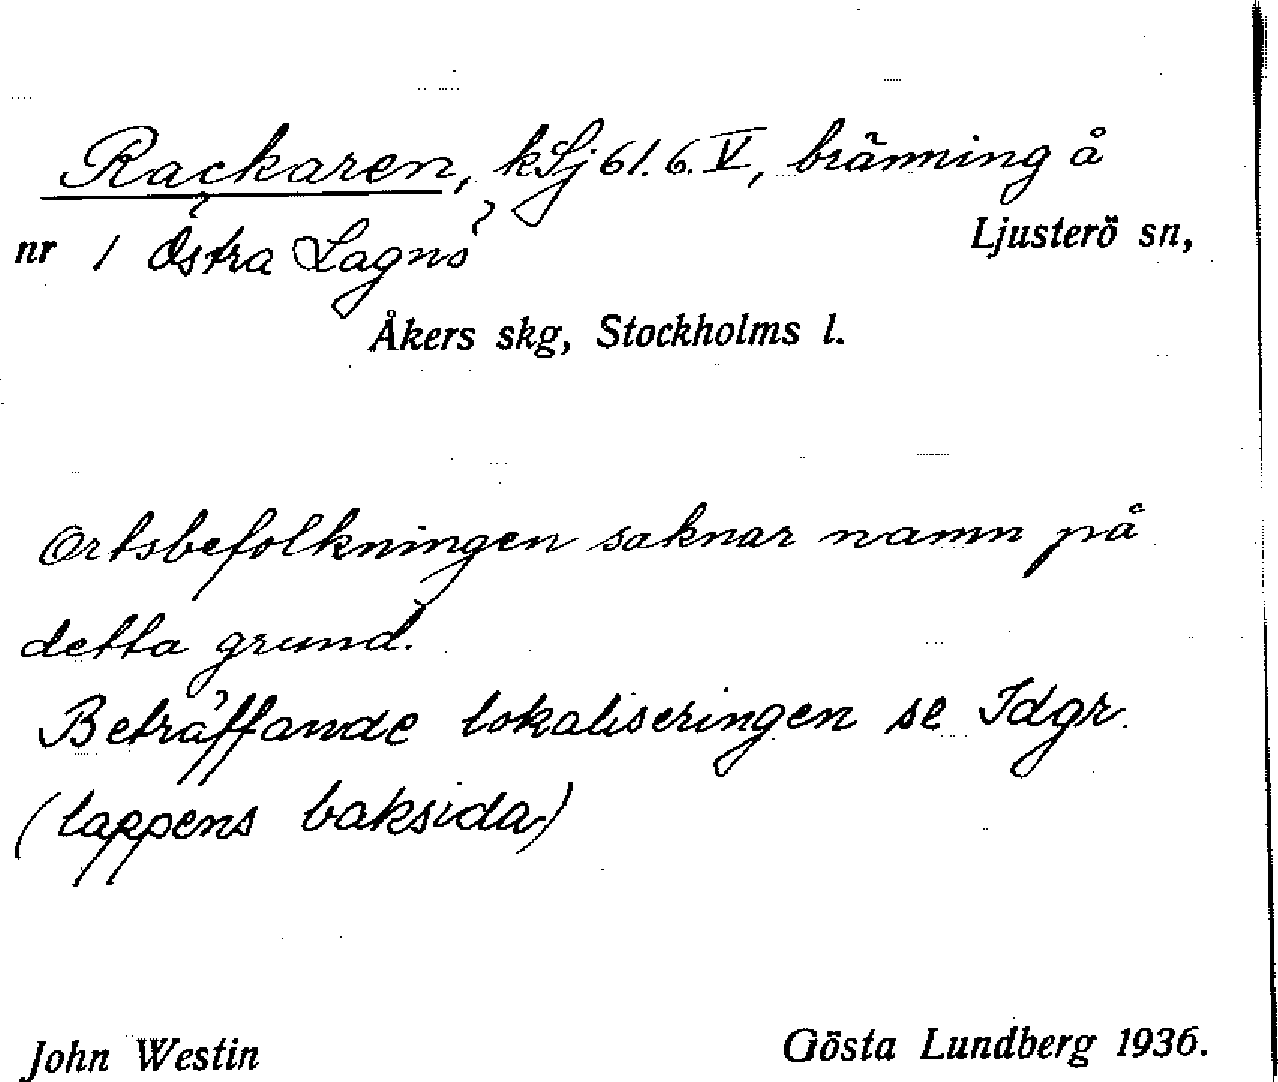 Rackaren, kSj 61. 6. V, bränning å
nr 1 Östra Lagnö Ljusterö sn,
Åkers skg, Stockholms l.
Ortsbefolkningen saknar namn på
detta grund.
Beträffande lokaliseringen se Idgr.
(lappens baksida)
John Westin Gösta Lundberg 1936.